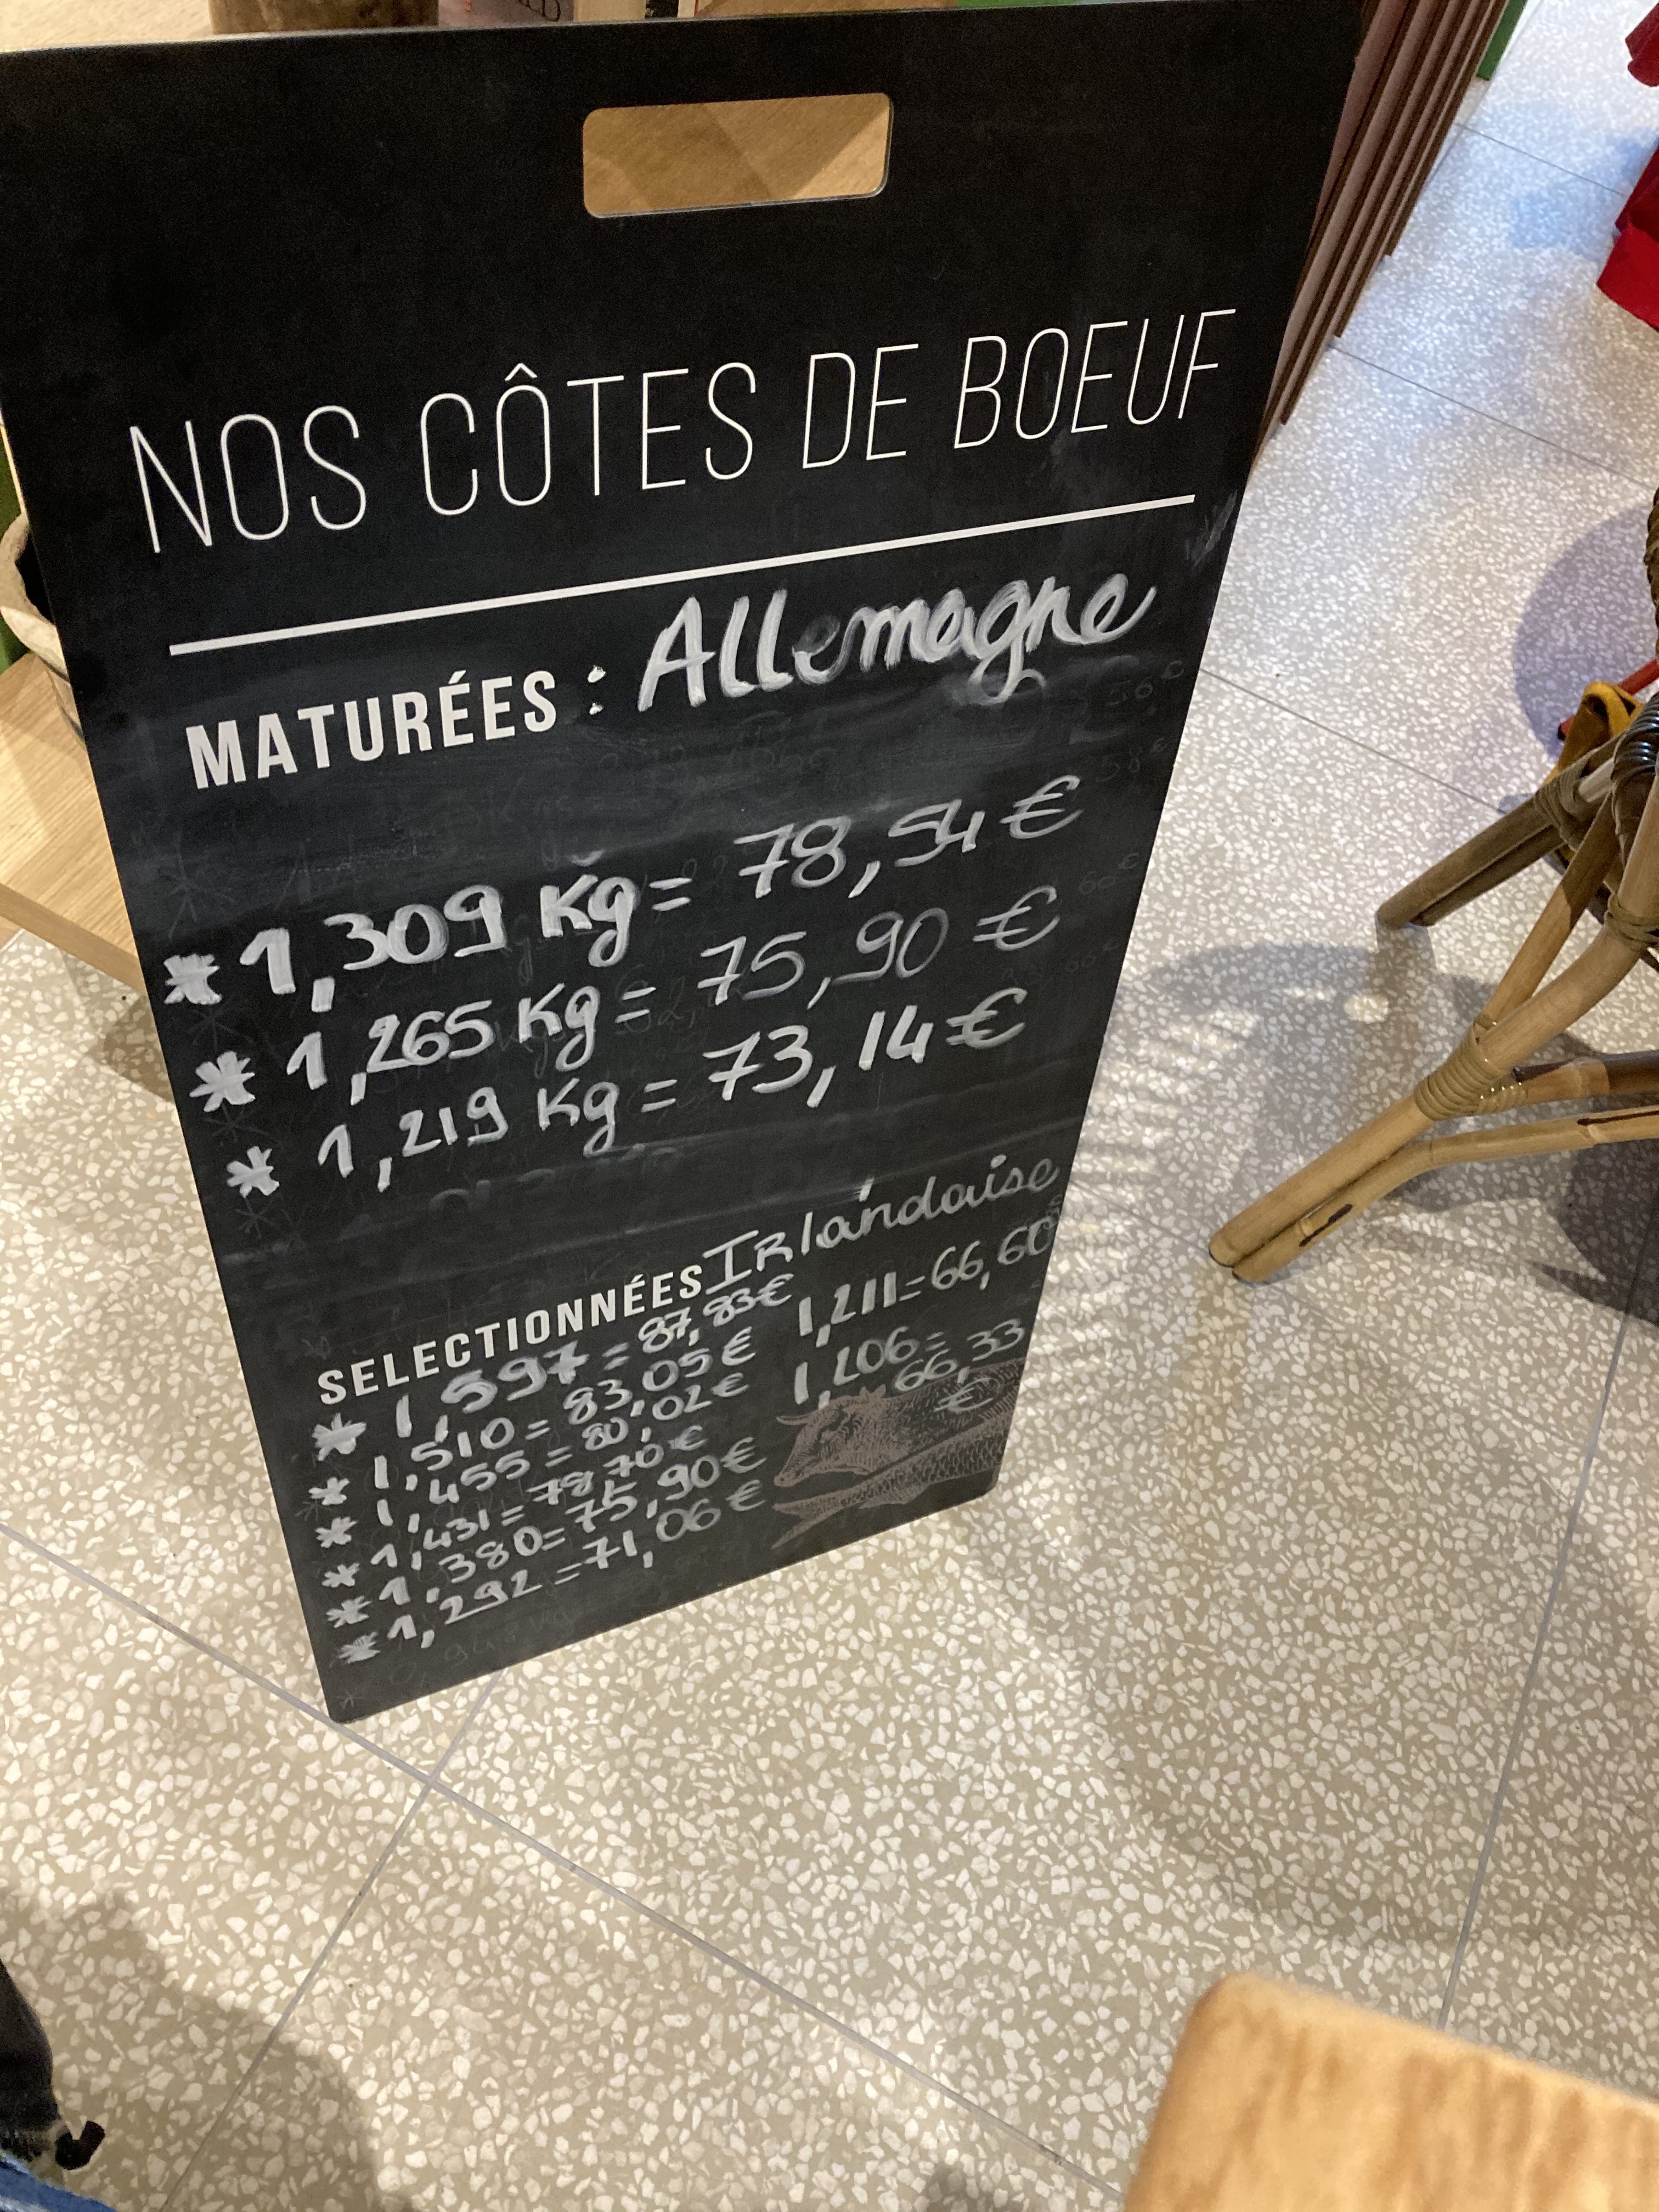 NOS CÔTES DE BOEUF
MATURÉES : Allemagne
* 1,309 Kg = 78,54 €
* 1,265 Kg = 75,90 €
* 1,219 Kg = 73,14 €
SELECTIONNÉES IRlandaise
* 1,597 = 87,83 €
* 1,510 = 83,05 €
* 1,455 = 80,02 €
* 1,431 = 78,70 €
* 1,380 = 75,90 €
* 1,292 = 71,06 €
1,211 = 66,60
1,206 =
66,33
€